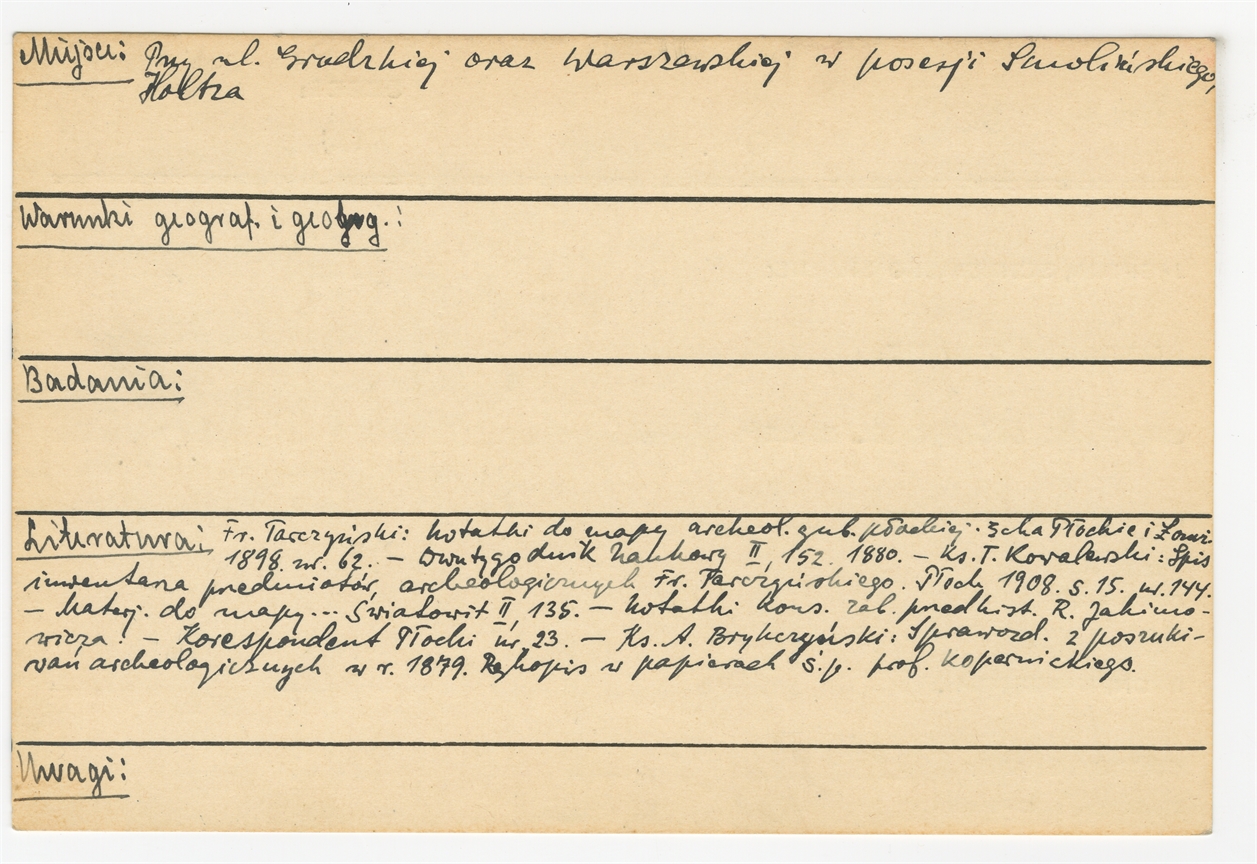 Miejsce: Przy ul. Grodzkiej oraz Warszawskiej w posesji Smolińskiego,
Holtza
Warunki geograf. i geolog.:
Badania:
Literatura: Fr. Tarczyński: Notatki do mapy archeol. gub. płockiej. Echa Płockie i Łomż.
1898. nr. 62. – Dwutygodnik Naukowy II, 152. 1880. – Ks. T. Kowalewski: Spis
inwentarza przedmiotów archeologicznych Fr. Tarczyńskiego. Płock 1908. s. 15. nr. 144.
– Materj. do mapy... Światowit II, 135. – Notatki kons. zab. przedhist. R. Jakimo-
wicza. – Korespondent Płocki nr. 23. – Ks. A. Brykczyński: Sprawozd. z poszuki-
wań archeologicznych w r. 1879. Rękopis w papierach ś.p. prof. Kopernickiego.
Uwagi: